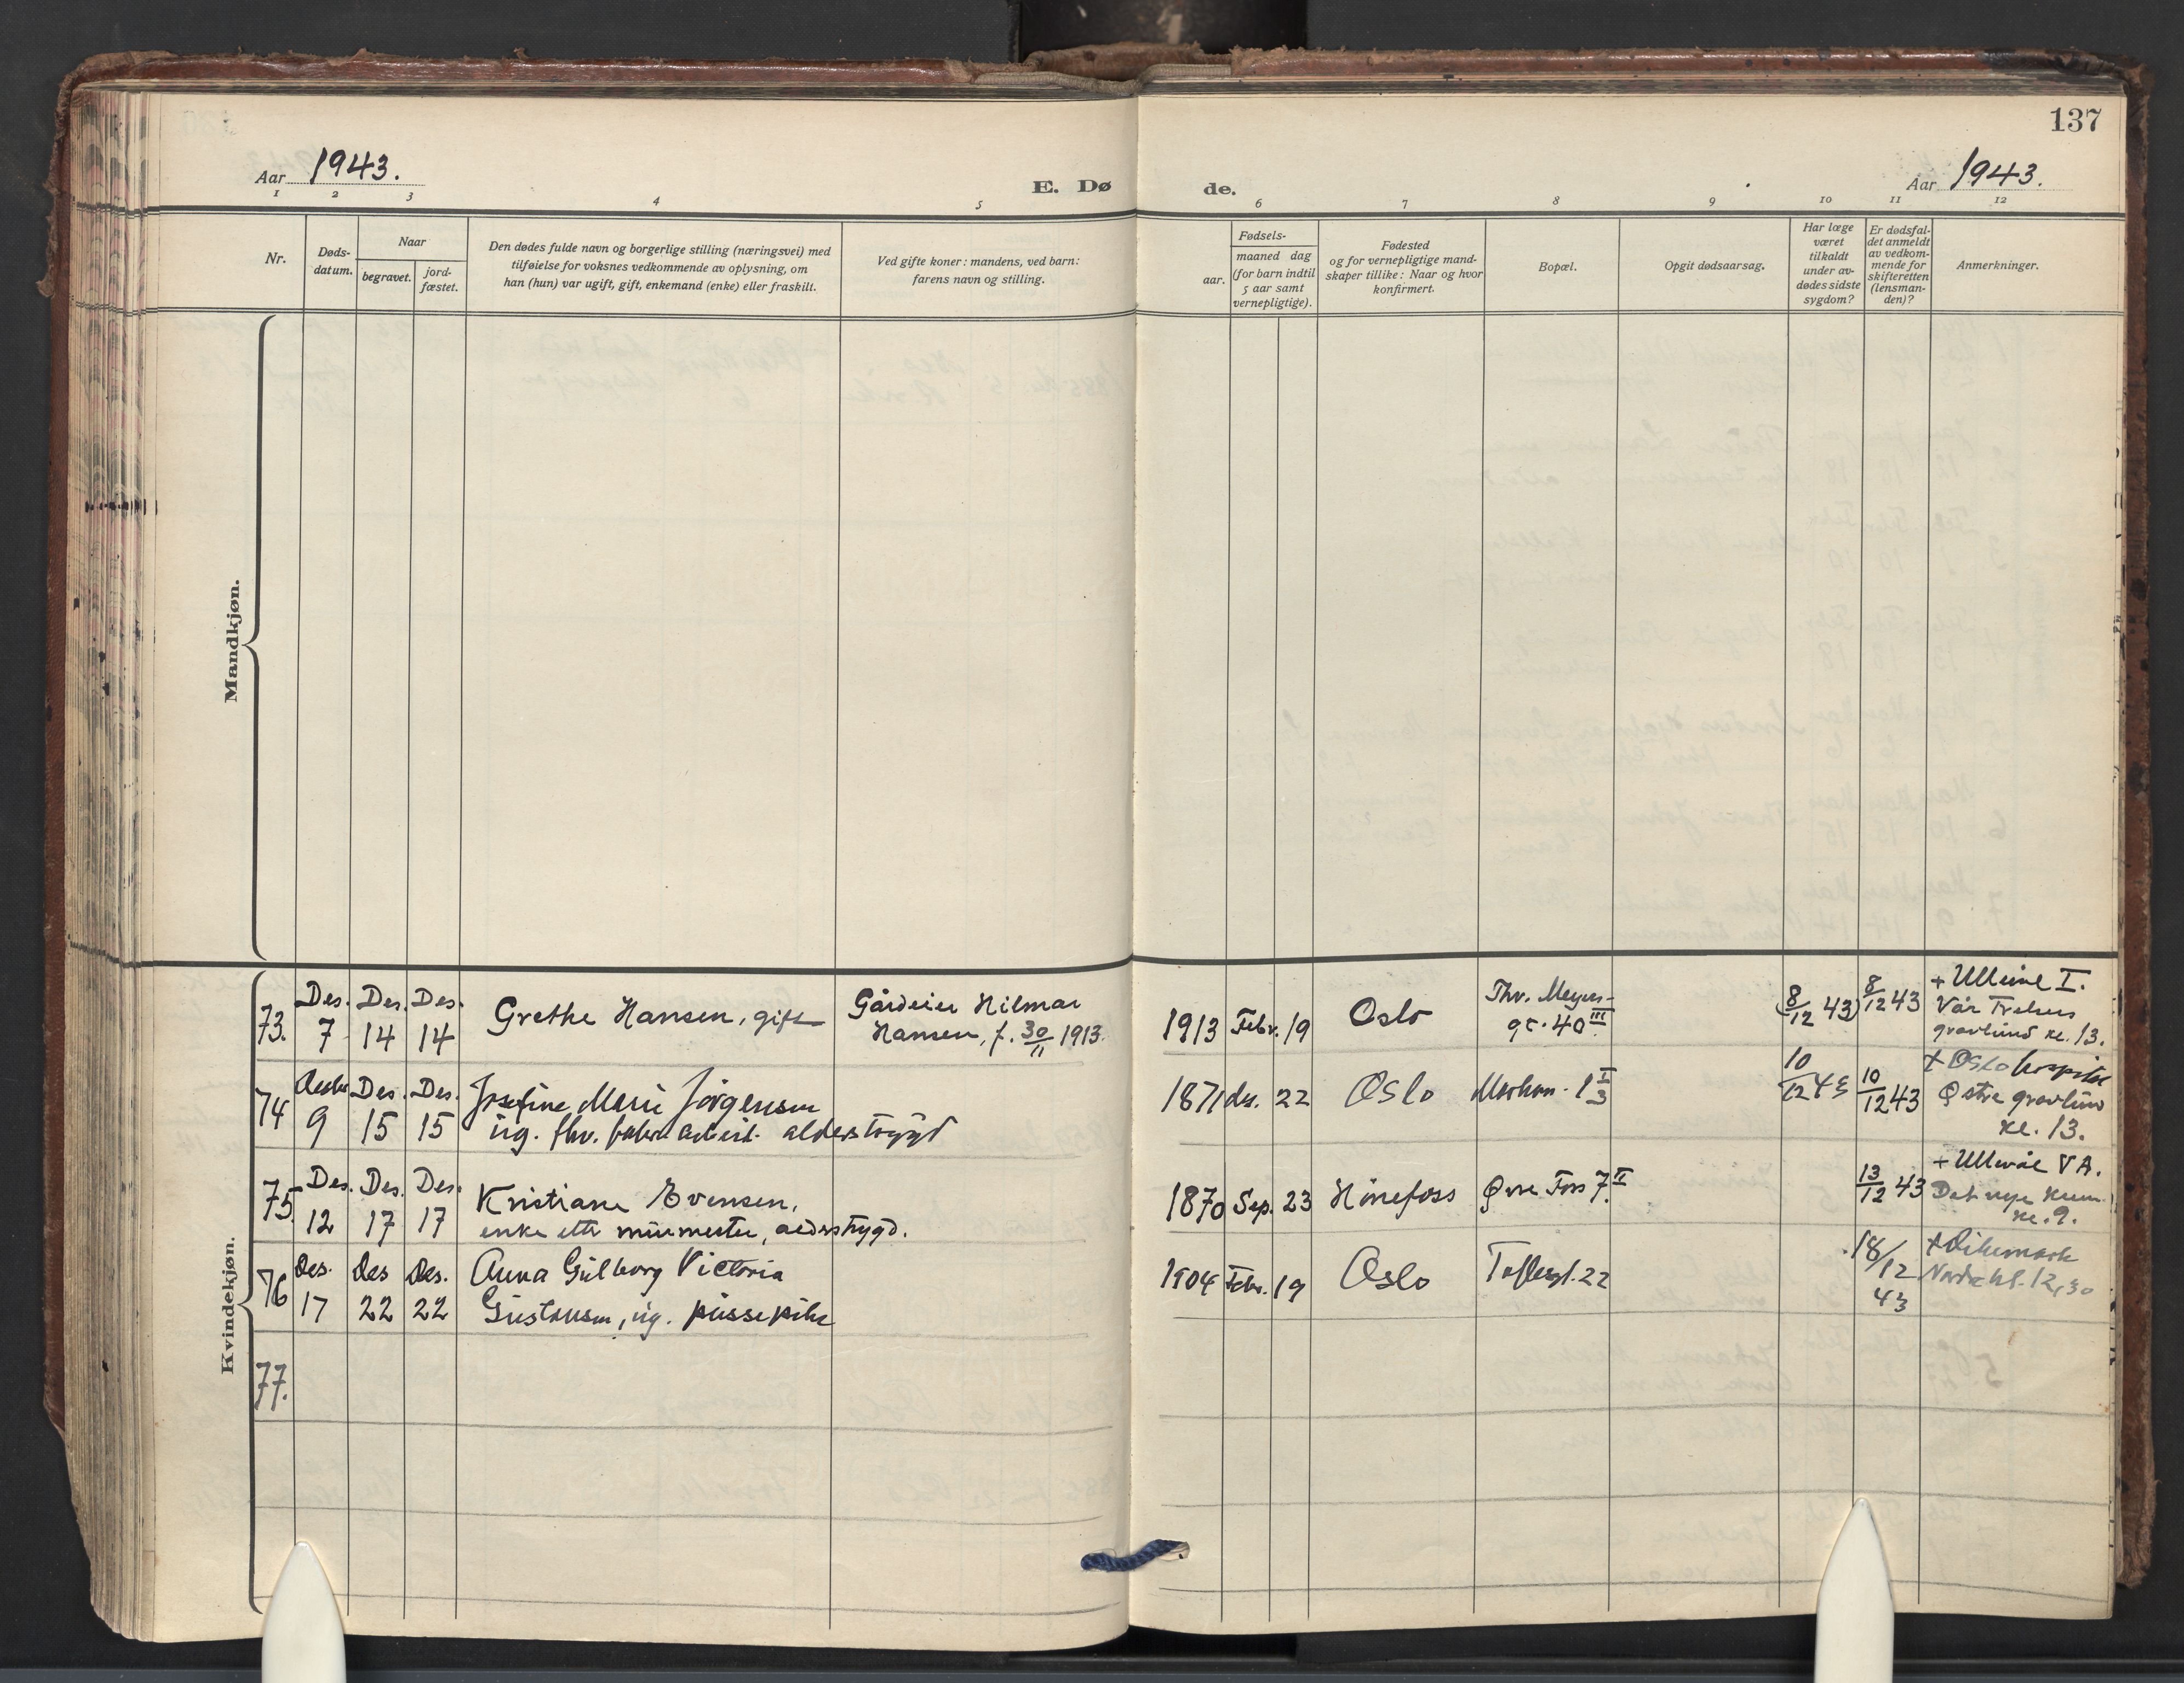 137
Aar 1943.
E. Døde.
Aar 1943.
1 2 3 4 5 6 7 8 9 10 11 12
Nr.
Døds-
datum.
Naar
begravet.
jord-
fæstet.
Den dødes fulde navn og borgerlige stilling (næringsvei) med
tilføielse for voksnes vedkommende av oplysning, om
han (hun) var ugift, gift, enkemand (enke) eller fraskilt.
Ved gifte koner: mandens, ved barn:
farens navn og stilling.
Fødsels-
aar.
maaned dag
(for barn indtil
5 aar samt
vernepligtige).
Fødested
og for vernepligtige mand-
skaper tillike: Naar og hvor
konfirmert.
Bopæl.
Opgit dødsaarsag.
Har læge
været
tilkaldt
under av-
dødes sidste
sygdom?
Er dødsfal-
det anmeldt
av vedkom-
mende for
skifteretten
(lensman-
den)?
Anmerkninger.
Mandkjøn.
Kvindekjøn.
73.
Des. 7
Des. 14
Des. 14
Grethe Hansen, gift
Gårdeier Hilmar
Hansen, f. 30/11 1913.
1913 Febr. 19
Oslo
Thv. Meyers-
gt. 40 III
(8/12 43)
8/12 43
+ Ullevål I.
Vår Frelsers
gravlund kl. 13.
74
9
Des. 15
Des. 15
Josefine Marie Jörgensen
ug. fhv. alderstrygd
1871 des. 22
Oslo
10/12 43
10/12 43
+ Oslo hospital
Østre gravlund
kl. 13.
75
Des. 12
Des. 17
Des. 17
Kristiane Evensen,
enke etter murmester, alderstrygd.
1870 Sep. 23
Hönefoss
Øvre Foss 7 II
13/12 43
+ Ullevål VA.
Det nye krem.
kl. 9.
76
Des. 17
Des 22
Des. 22
Anna Gulborg Victoria
Gustavsen, ug. pussepike
1904 Febr. 19
Oslo
Toftesgt. 22
18/12 43
+ Dikemark
Nordre kl. 12,30
77.